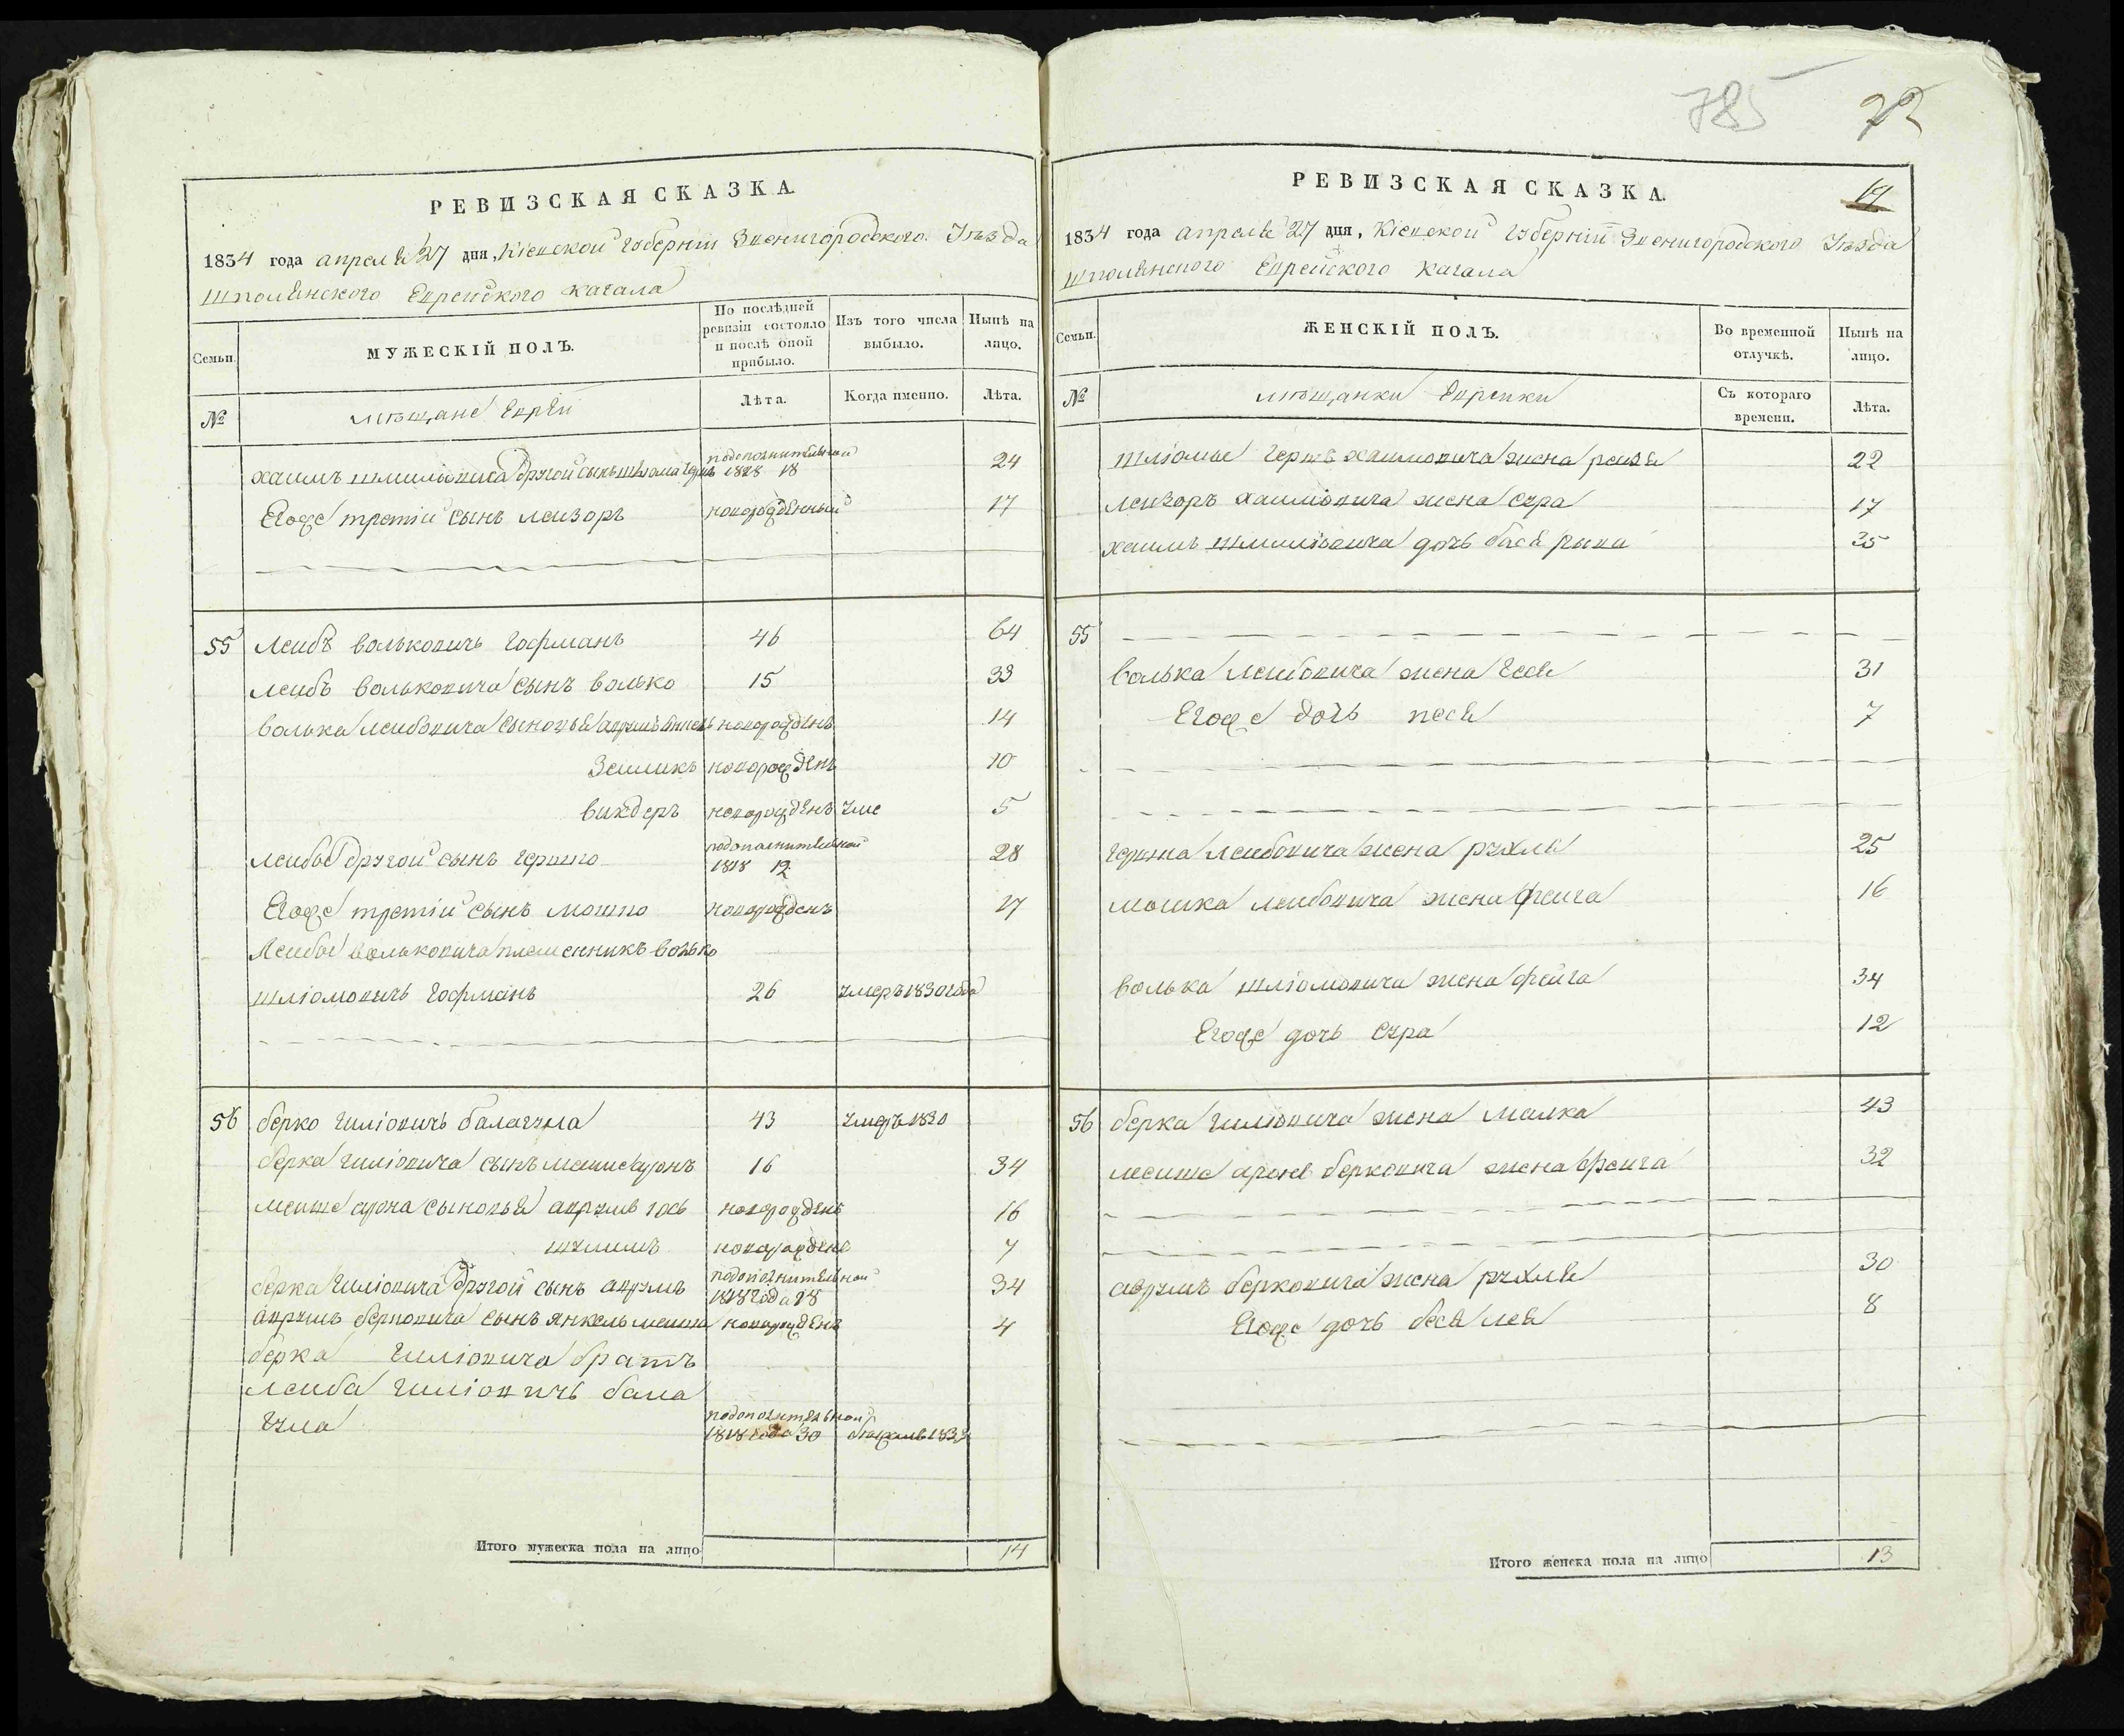 785 72
РЕВИЗСКАЯ СКАЗКА.
1834 года апреля 27 дня, Кіевской Губерніи Звенигородского Уезда
шполянского Еврейского кагала
Семьи.
МУЖЕСКІЙ ПОЛЪ.
По послѣдней ревизіи состояло и послѣ оной прибыло.
Изъ того числа выбыло.
Нынѣ на лицо.
№
мѣщане Евреи
Лѣта.
Когда именно.
Лѣта.
хаимъ шмиліовича другой сынъ шлиома герш
подополнительной 1818 18 24
Егоже третіи сынъ леизоръ новорожденный 17
55 леибъ вольковичь гофманъ 46 64
леибъ вольковича сынъ волько 15 33
волька леибовича сыновья новорожденъ 14
Зеиликъ новорожденъ 10
викдеръ новорожденъ 5
леибы другой сынъ гершко подополнительной 1818 12 28
Егоже третіи сынъ мошко новорожденъ 17
Леибы вольковича племенникъ волько
шліомовичь гофманъ 26 умеръ 1830 года
56 берко гиліовичь балагула 43 умеръ 1830
берка гиліовича сынъ меише аронъ 16 34
меише арона сыновья аврумъ іось новорожденъ 16
шулимъ новорожденъ 7
берка гиліовича другой сынъ аврумъ подополнительной 1818 года 18 34
аврумъ берковича сынъ янкель меиша новорожденъ 4
берка гиліовича братъ
леиба гиліовичъ бала
гула
подополнительной 1818 года 30
Итого мужеска пола на лицо 14
РЕВИЗСКАЯ СКАЗКА.
19
1834 года апреля 27 дня, Кіевской Губерніи Звенигородского Уезда
шполянского Еврейского кагала
Семьи.
ЖЕНСКІЙ ПОЛЪ.
Во временной отлучкѣ.
Нынѣ на лицо.
№
мѣщанки Евреики
Съ котораго времени.
Лѣта.
шліомы герш хаимовича жена реизя 22
леизоръ хаиміовича жена сура 17
хаимъ шмиліовича дочь бася рыва 35
55
волька леибовича жена геся 31
Егоже дочь песя 7
гершка леибовича жена рухля 25
мошка леибовича жена феига 16
волька шліомовича жена феига 34
Егоже дочь сура 12
56 берка гиліовича жена малка 43
меише арона берковича жена феига 32
аврумъ берковича жена рухля 30
Егоже дочь бася лея 8
Итого женска пола на лицо 13